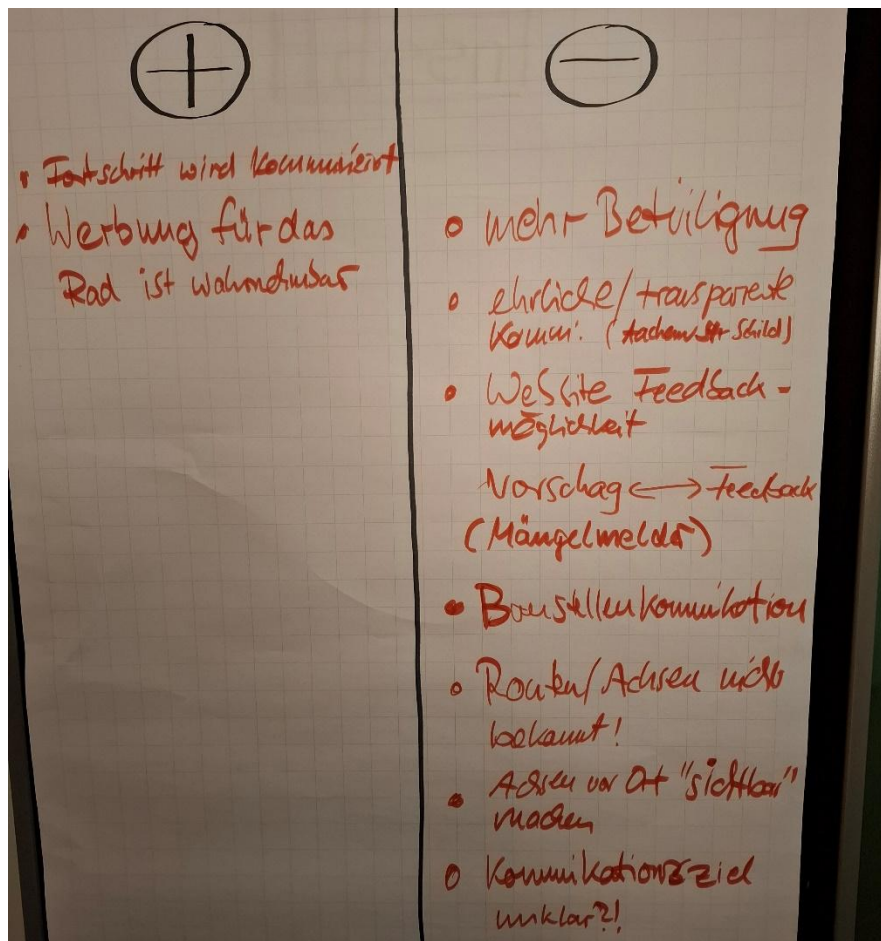 +
• Fortschritt wird kommuniziert
• Werbung für das
Rad ist wahrnehmbar
−
• mehr Beteiligung
• ehrliche/transparente
Komm. (Aachener Str Schild)
• Website Feedback-
möglichkeit
Vorschag ↔ Feedback
(Mängelmelder)
• Baustellenkommunikation
• Routen/Achsen nicht
bekannt!
• Achsen vor Ort "sichtbar"
machen
• Kommunikationsziel
unklar?!